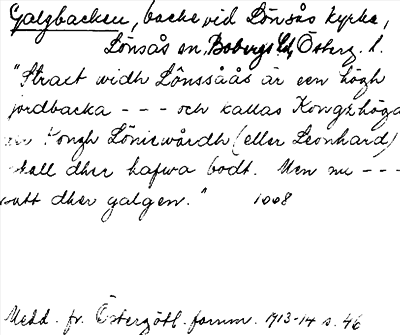 Galgbacken, backe vid Lönsås kyrka,
Lönsås sn, Bobergs hd, Österg. l.
"Straet widh Lönssåås är een högh
jordbacka - - - och kallas Kongzhöga
Kongh Löniewårdh (eller Leonhard)
skall dher hafwa bodt. Men nu - - -
satt dher galgen." 1668
Medd. fr. Östergötl. fornm. 1913-14 s. 46